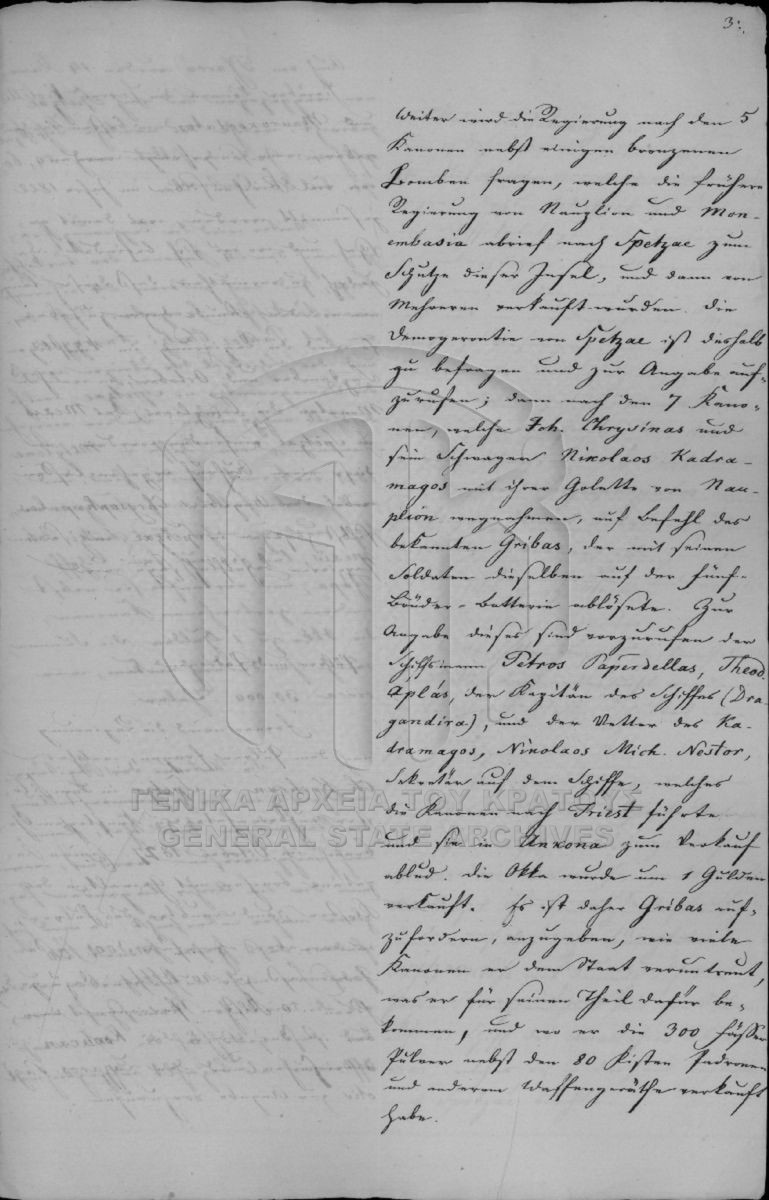 3.
Weiter wird die Regierung nach den 5
Kanonen nebst einigen bronzenen
Bomben fragen, welche die frühere
Regierung von Nauplion und Mon-
embasia abrief nach Spetzae zum
Schutze dieser Insel, und dann von
Mehreren verkauft wurden. Die
Demogerontie von Spetzae ist deshalb
zu befragen und zur Angabe auf-
zurufen; dann nach den 7 Kano-
nen, welche Joh. Chrysinas und
sein Schwager Nikolaos Kadra-
magos mit ihrer Golette von Nau-
plion wegnahmen, auf Befehl des
bekannten Gribas, der mit seinen
Soldaten dieselben auf der Fünf-
Brüder-Batterie ablösete. Zur
Angabe dieses sind vorzurufen der
Schiffsmann Petros Paperdellas, Theod.
Aplás, der Kapitän des Schiffes (Dra-
gandira), und der Vetter des Ka-
dramagos, Nikolaos Mich. Nestor,
Sekretär auf dem Schiffe, welches
die Kanonen nach Triest führte
und sie in Ankona zum Verkauf
ablud. Die Okka wurde um 1 Gulden
verkauft. Es ist daher Gribas auf-
zufordern, anzugeben, wie viele
Kanonen er dem Staat veruntreut,
was er für seinen Theil dafür be-
kommen, und wo er die 300 Fässer
Pulver nebst den 80 Kisten Patronen
und anderem Waffengeräthe verkauft
habe.
ΓΕΝΙΚΑ ΑΡΧΕΙΑ ΤΟΥ ΚΡΑΤΟΥΣ
GENERAL STATE ARCHIVES